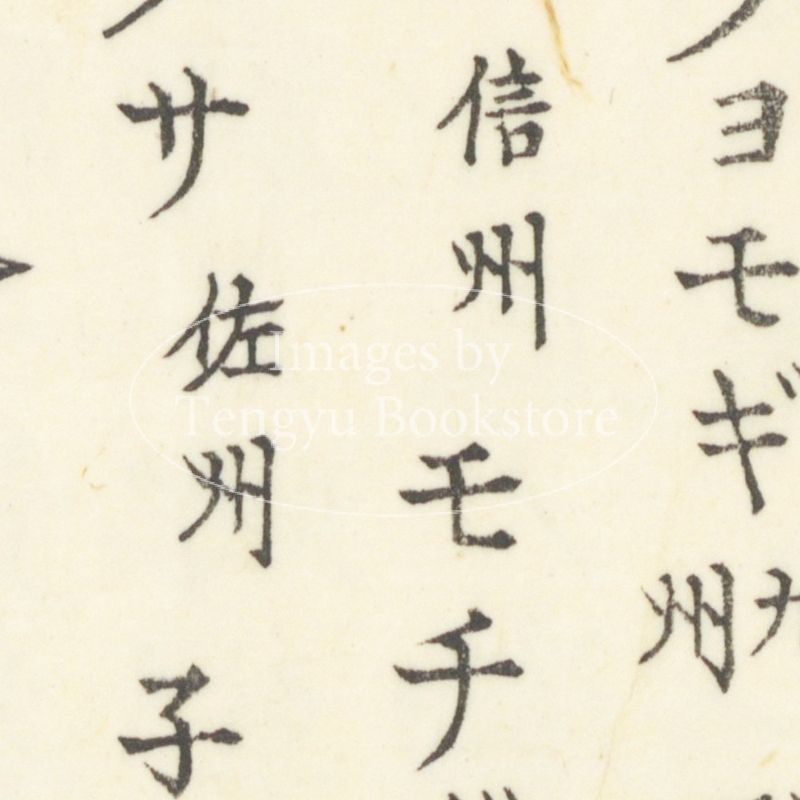 ヨモギ
州
信州
モチ
サ
佐州
子
Images by
Tengyu Bookstore